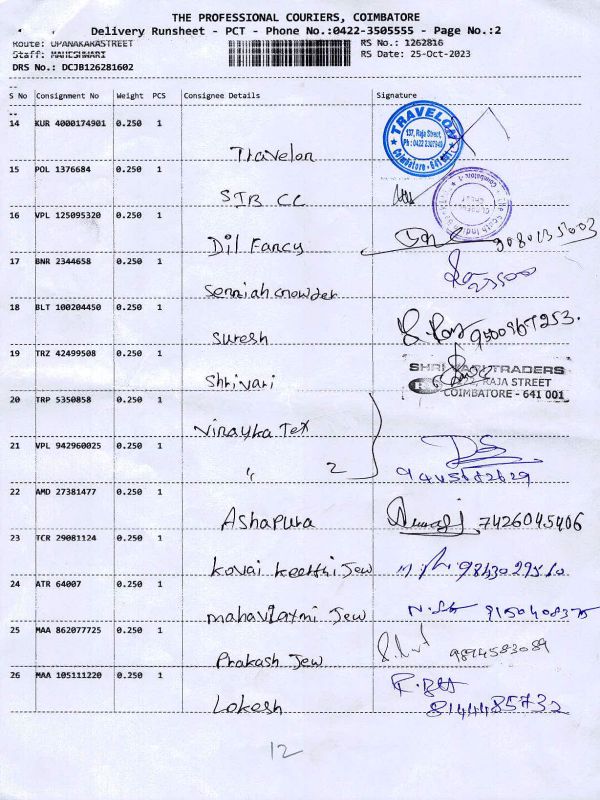 THE PROFESSIONAL COURIERS, COIMBATORE
Delivery Runsheet - PCT - Phone No.:0422-3505555 - Page No.:2
Route: UPANAKARASTREET
RS No.: 1262816
Staff: MAHESHWARI
RS Date: 25-Oct-2023
DRS No.: DCJB126281602
S No Consignment No Weight PCS Consignee Details Signature
14 KUR 4000174901 0.250 1 Travelon
TRAVELON
137, Raja Street,
Coimbatore - 641 001
15 POL 1376684 0.250 1 SIB CC
16 VPL 125095320 0.250 1 Dil Fancy
17 BNR 2344658 0.250 1
18 BLT 100204450 0.250 1 Suresh
19 TRZ 42499508 0.250 1 Shrivari
TRADERS
RAJA STREET
COIMBATORE - 641 001
20 TRP 5350858 0.250 1 Vinayka Tex
21 VPL 942960025 0.250 1 " 2
22 AMD 27381477 0.250 1 Ashapura 7426045406
23 TCR 29081124 0.250 1 Kovai Keerthi Jew
24 ATR 64007 0.250 1 mahavlaxmi Jew
25 MAA 862077725 0.250 1 Prakash Jew 9894583089
26 MAA 105111220 0.250 1 Lokesh 8144485732
12